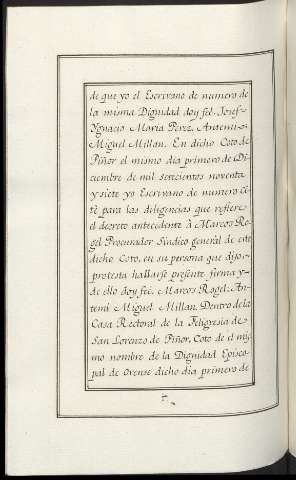 de que yo el Escrivano de numero de
la misma Dignidad doy feé. Josef
Ygnacio Maria Perez. Antemi
Miguel Millan. En dicho Coto de
Piñor el mismo dia primero de Di-
ciembre de mil setecientos noventa
y siete yo Escrivano de numero ci-
tè para las diligencias que refiere
el decreto antecedente à Marcos Ro-
gel Procurador Sindico general de este
dicho Coto, en su persona que dijo,
protesta hallarse presente firma y
de ello doy feé. Marcos Rogel. An-
temi Miguel Millan. Dentro de la
Casa Rectoral de la Feligresia de
San Lorenzo de Piñor, Coto de el mis-
mo nombre de la Dignidad Episco-
pal de Orense dicho dia primero de